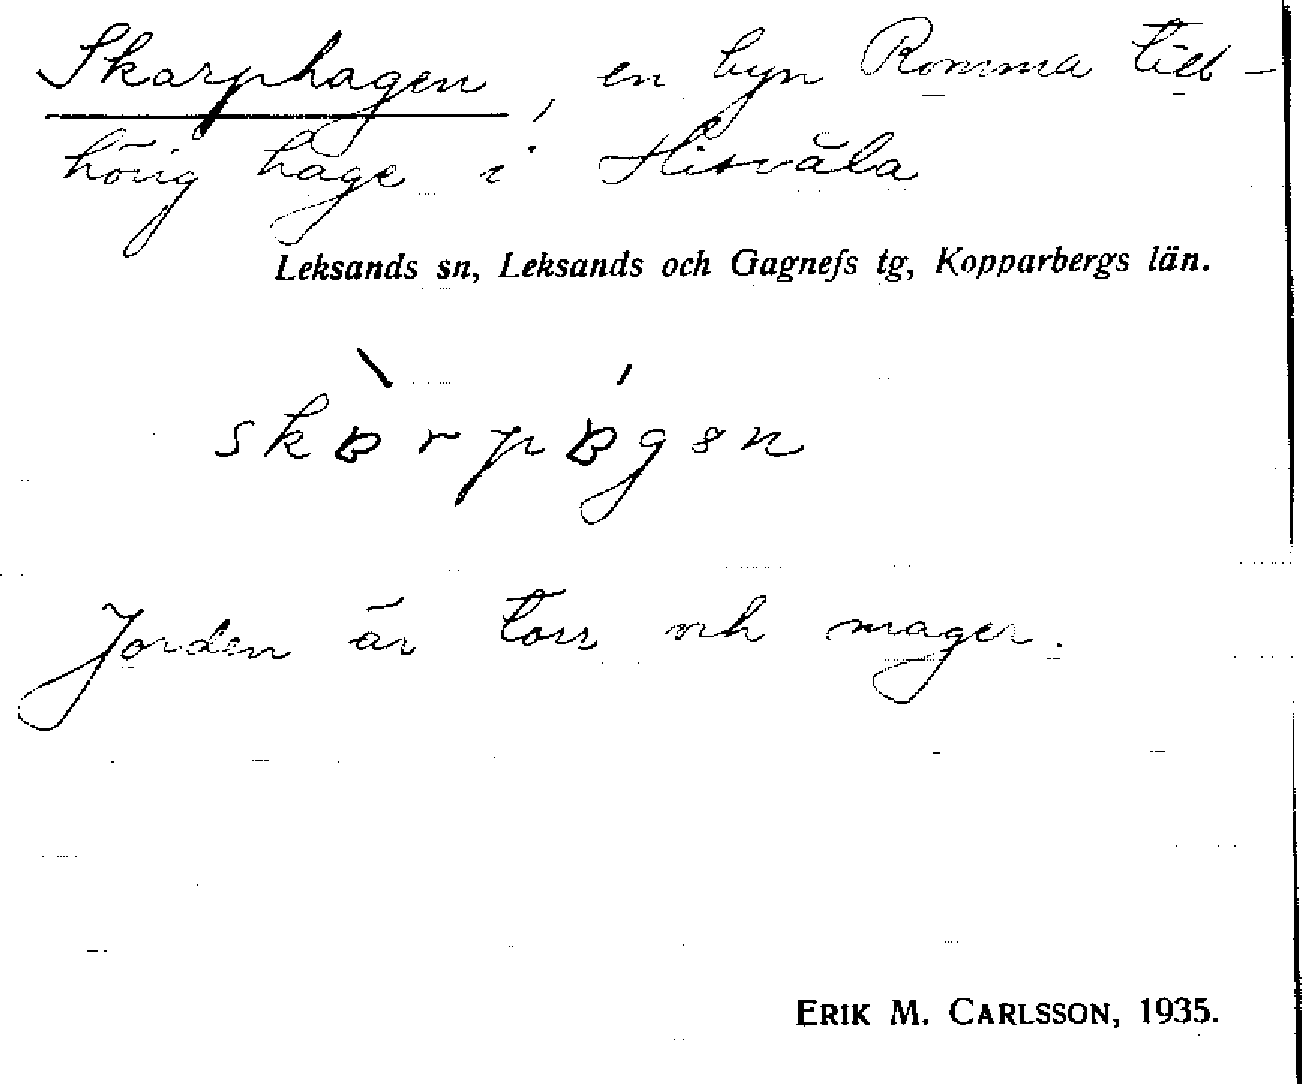 Skarphagen, en byn Romma till-
hörig hage i Hisvåla
Leksands sn, Leksands och Gagnefs tg, Kopparbergs län.
Jorden är torr och mager.
ERIK M. CARLSSON, 1935.